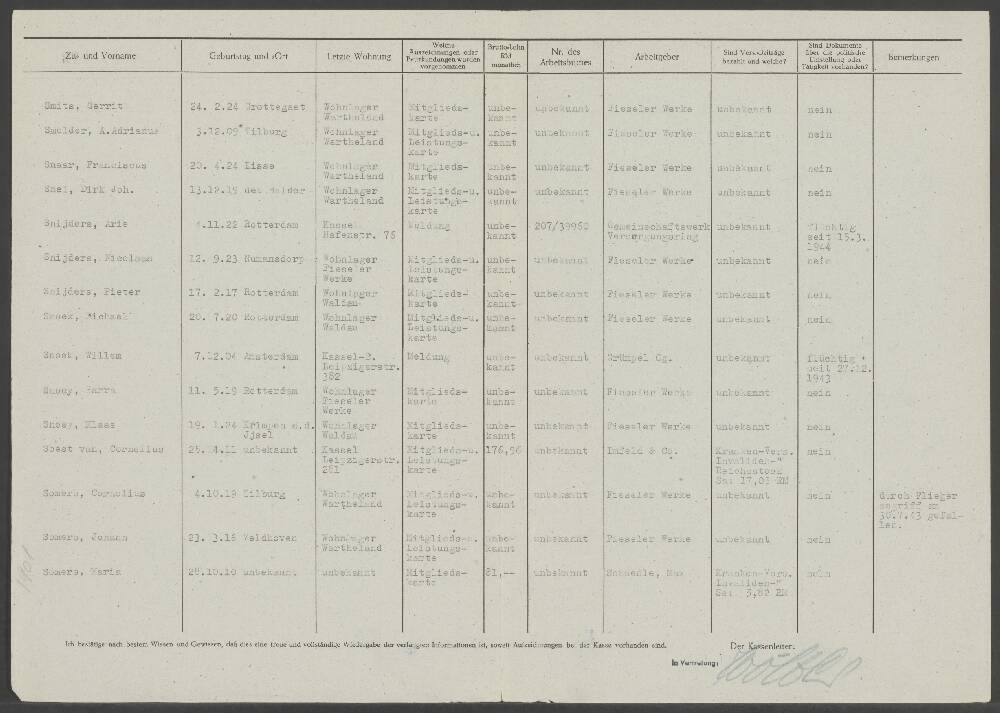 Zu- und Vorname | Geburtstag und -Ort | Letzte Wohnung | Welche Aufzeichnungen oder Beurkundungen wurden vorgenommen | Bruttolohn RM monatlich | Nr. des Arbeitsbuches | Arbeitgeber | Sind Vers.-Beiträge bezahlt und welche? | Sind Dokumente über die politische Einstellung oder Tätigkeit vorhanden? | Bemerkungen
Smits, Gerrit | 24. 2.24 Grottegast | Wohnlager Wartheland | Mitglieds-karte | unbe-kannt | unbekannt | Fieseler Werke | unbekannt | nein
Smolder, A.Adrianus | 3.12.09 Tilburg | Wohnlager Wartheland | Mitglieds-u. Leistungs-karte | unbe-kannt | unbekannt | Fieseler Werke | unbekannt | nein
Franciscus | 20. 4.24 Lisse | Wohnlager Wartheland | Mitglieds-karte | unbe-kannt | unbekannt | Fieseler Werke | unbekannt | nein
Snel, Dirk Joh. | 13.12.19 den Helder | Wohnlager Wartheland | Mitglieds-u. Leistungs-karte | unbe-kannt | unbekannt | Fieseler Werke | unbekannt | nein
Snijders, Arie | 4.11.22 Rotterdam | Kassel Hafenstr. 76 | Meldung | unbe-kannt | 207/39960 | Gemeinschaftswerk Versorgungsring | unbekannt | flüchtig seit 15.3. 1944
Snijders, Nicolaas | 12. 9.23 Numansdorp | Wohnlager Fieseler Werke | Mitglieds-u. Leistungs-karte | unbe-kannt | unbekannt | Fieseler Werke | unbekannt | nein
Snijders, Pieter | 17. 2.17 Rotterdam | Wohnlager Waldau | Mitglieds-karte | unbe-kannt | unbekannt | Fieseler Werke | unbekannt | nein
Snoek, Michael | 20. 7.20 Rotterdam | Wohnlager Waldau | Mitglieds-u. Leistungs-karte | unbe-kannt | unbekannt | Fieseler Werke | unbekannt | nein
Snoek, Willem | 7.12.04 Amsterdam | Kassel-B. Leipzigerstr. 382 | Meldung | unbe-kannt | unbekannt | Grümpel Cg. | unbekannt | flüchtig seit 27.12. 1943
Snoey, | 11. 5.19 Rotterdam | Wohnlager Fieseler Werke | Mitglieds-karte | unbe-kannt | unbekannt | Fieseler Werke | unbekannt | nein
Snoey, Klaas | 19. 1.24 Krimpen a.d. Jjsel | Wohnlager Waldau | Mitglieds-karte | unbe-kannt | unbekannt | Fieseler Werke | unbekannt | nein
Soest van, Cornelius | 25. 4.11 unbekannt | Kassel Leipzigerstr. 281 | Mitglieds-u. Leistungs-karte | 176,96 | unbekannt | Imfeld & Co. | Kranken-Vers. Invaliden-" Reichsstock Sa: 17,03 RM | nein
Somers, Cornelius | 4.10.19 Tilburg | Wohnlager Wartheland | Mitglieds-u. Leistungs-karte | unbe-kannt | unbekannt | Fieseler Werke | unbekannt | nein | durch Flieger angriff am 30.7.43 gefal-len.
Somers, Johann | 23. 3.16 Veldhoven | Wohnlager Wartheland | Mitglieds-u. Leistungs-karte | unbe-kannt | unbekannt | Fieseler Werke | unbekannt | nein
Somers, Maria | 28.10.10 unbekannt | unbekannt | Mitglieds-karte | 81,-- | unbekannt | Max | Kranken-Vers. Invaliden-" Sa: 5,82 RM | nein
Ich bestätige nach bestem Wissen und Gewissen, daß dies eine treue und vollständige Wiedergabe der verlangten Informationen ist, soweit Aufzeichnungen bei der Kasse vorhanden sind.
Der Kassenleiter:
In Vertretung: